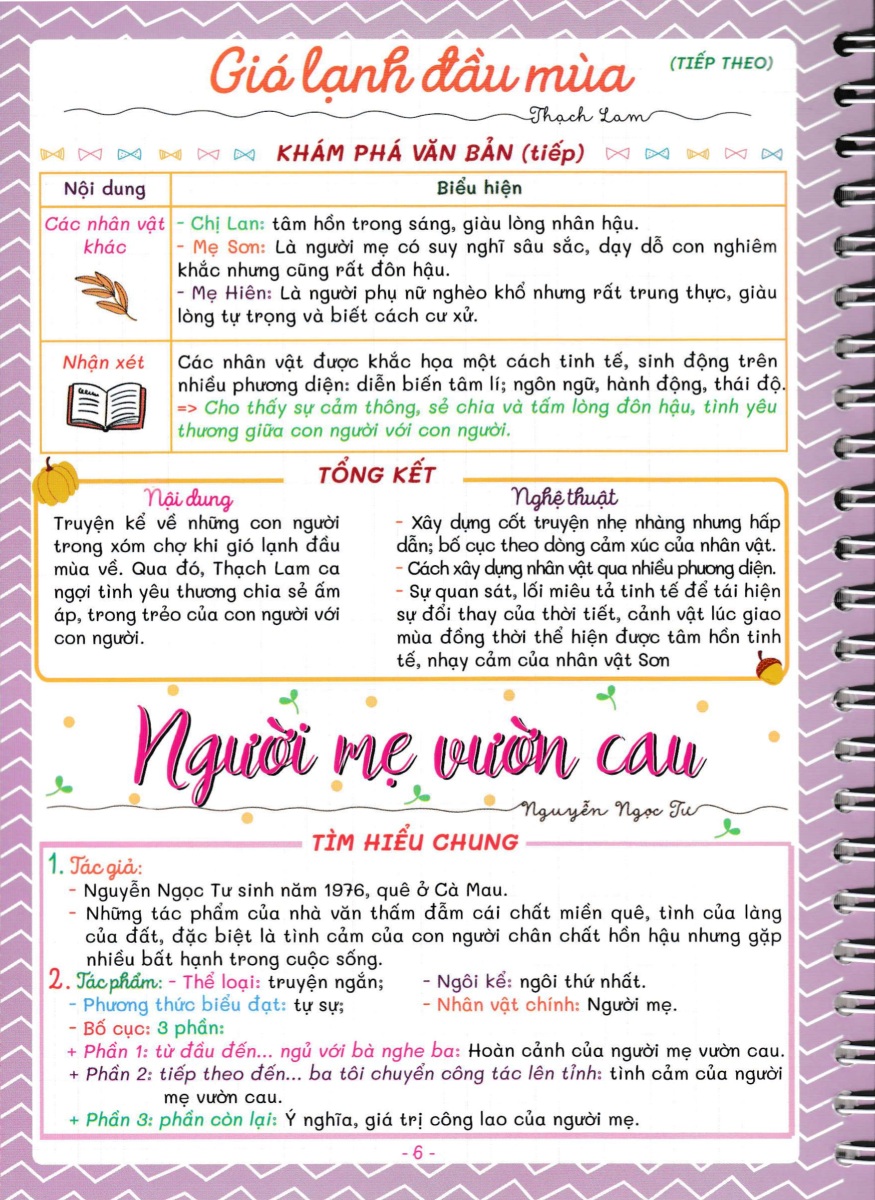 Gió lạnh đầu mùa
(TIẾP THEO)
Thạch Lam
KHÁM PHÁ VĂN BẢN (tiếp)
Nội dung
Biểu hiện
Các nhân vật
khác
- Chị Lan: tâm hồn trong sáng, giàu lòng nhân hậu.
- Mẹ Sơn: Là người mẹ có suy nghĩ sâu sắc, dạy dỗ con nghiêm
khắc nhưng cũng rất đôn hậu.
- Mẹ Hiên: Là người phụ nữ nghèo khổ nhưng rất trung thực, giàu
lòng tự trọng và biết cách cư xử.
Nhận xét
Các nhân vật được khắc họa một cách tinh tế, sinh động trên
nhiều phương diện: diễn biến tâm lí; ngôn ngữ, hành động, thái độ.
=> Cho thấy sự cảm thông, sẻ chia và tấm lòng đôn hậu, tình yêu
thương giữa con người với con người.
TỔNG KẾT
Nội dung
Truyện kể về những con người
trong xóm chợ khi gió lạnh đầu
mùa về. Qua đó, Thạch Lam ca
ngợi tình yêu thương chia sẻ ấm
áp, trong trẻo của con người với
con người.
Nghệ thuật
- Xây dựng cốt truyện nhẹ nhàng nhưng hấp
dẫn; bố cục theo dòng cảm xúc của nhân vật.
- Cách xây dựng nhân vật qua nhiều phương diện.
- Sự quan sát, lối miêu tả tinh tế để tái hiện
sự đổi thay của thời tiết, cảnh vật lúc giao
mùa đồng thời thể hiện được tâm hồn tinh
tế, nhạy cảm của nhân vật Sơn
Người mẹ vườn cau
Nguyễn Ngọc Tư
TÌM HIỂU CHUNG
1. Tác giả:
- Nguyễn Ngọc Tư sinh năm 1976, quê ở Cà Mau.
- Những tác phẩm của nhà văn thấm đẫm cái chất miền quê, tình của làng
của đất, đặc biệt là tình cảm của con người chân chất hồn hậu nhưng gặp
nhiều bất hạnh trong cuộc sống.
2. Tác phẩm: - Thể loại: truyện ngắn; - Ngôi kể: ngôi thứ nhất.
- Phương thức biểu đạt: tự sự; - Nhân vật chính: Người mẹ.
- Bố cục: 3 phần:
+ Phần 1: từ đầu đến... ngủ với bà nghe ba: Hoàn cảnh của người mẹ vườn cau.
+ Phần 2: tiếp theo đến... ba tôi chuyển công tác lên tỉnh: tình cảm của người
mẹ vườn cau.
+ Phần 3: phần còn lại: Ý nghĩa, giá trị công lao của người mẹ.
- 6 -